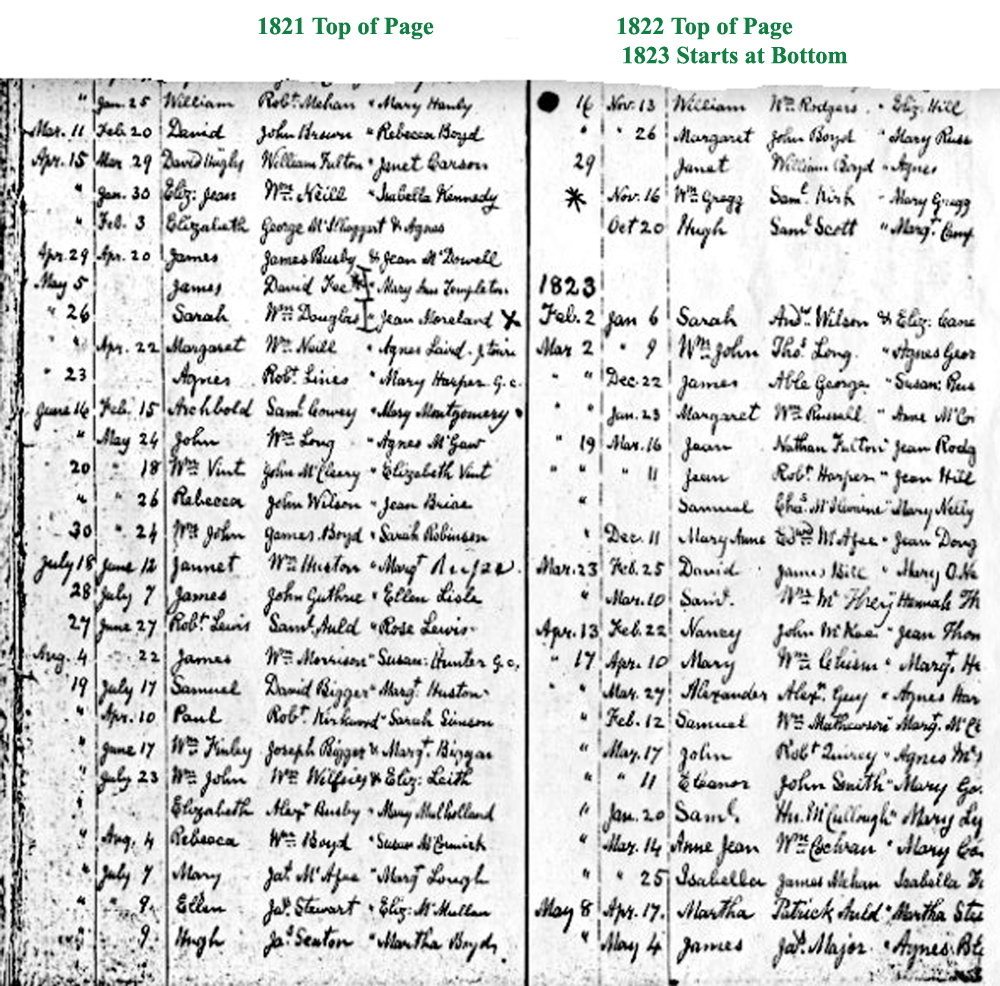 1821 Top of Page
" Jan. 25 William Robt. Mehan " Mary Hanly
Mar. 11 Feb. 20 David John Brown " Rebecca Boyd
Apr. 15 Mar. 29 David Hughs William Fulton " Jenet Carson
" Jan. 30 Eliz: Jean Wm. Neill " Isabella Kennedy
" Feb. 3 Elizabeth George & Agnes
Apr. 29 Apr. 20 James James Busby & Jean McDowell
May 5 James David " Mary Ann Templeton
" 26 Sarah Wm. Douglas " Jean Moreland X
" Apr. 22 Margaret Wm. Neill " Agnes Laird.
" 23 Agnes Robt. Lines " Mary Harper G.c.
June 16 Feb. 15 Archbold Saml. Cowey " Mary Montgomery
" May 24 John Wm. Long " Agnes McGaw
" 20 " 18 Wm. Vint John McCleery " Elizabeth Vint
" " 26 Rebecca John Wilson " Jean Brice
30 " 24 Wm. John James Boyd " Sarah Robinson
July 18 June 12 Jannet Wm. Huston " Margt.
28 July 7 James John Guthrie " Ellen Lisle
27 June 27 Robt. Lewis Saml. Auld " Rose Lewis
Aug. 4 22 James Wm. Morrison " Susan: Hunter G.c.
19 July 17 Samuel David Bigger " Margt. Huston
" Apr. 10 Paul Robt. Kirkwood " Sarah Simson
" June 17 Wm. Finley Joseph Bigger & Margt. Biggar
" July 23 Wm. John Wm. & Eliz: Leith
" Elizabeth Alexr. Busby " Mary Mulholland
" Aug. 4 Rebecca Wm. Boyd " Susan McCormick
" July 7 Mary Jas. McAfee " Margt. Lough
" " 9 Ellen Jas. Stewart " Eliz: McMullan
" 9 Hugh Jas. Seaton " Martha Boyd
1822 Top of Page
1823 Starts at Bottom
16 Nov. 13 William Wm. Rodgers. " Eliz: Hill
" " 26 Margaret John Boyd " Mary Russ
29 Janet William Boyd " Agnes
* Nov. 16 Wm. Gregg Saml. Kirk " Mary Gregg
Oct 20 Hugh Saml. Scott " Margt. Camp
1823
Feb. 2 Jan 6 Sarah Andw. Wilson & Eliz: Cane
Mar. 2 " 9 Wm. John Thos. Long. " Agnes Geor
" " Dec. 22 James Able George " Susan: Rus
" " Jan. 23 Margaret Wm. Russell " Anne McCo
" 19 Mar. 16 Jean Nathan Fulton " Jean Rodg
" " " 11 Jean Robt. Harper " Jean Hill
" Samuel Chas. McIlwaine " Mary Nelly
" Dec. 11 Mary Anne Edwd. McAfee " Jean Doug
Mar. 23 Feb. 25 David James Bill " Mary O.Ne
" Mar. 10 Saml. Wm. Hannah Th
Apr. 13 Feb. 22 Nancy John McKee " Jean Thom
" 17 Apr. 10 Mary Wm. Chism " Margt. He
" " Mar. 27 Alexander Alexr. Guy " Agnes Har
" Feb. 12 Samuel Wm. Mathewson " Margt. McCl
" Mar. 17 John Robt. Quirey " Agnes
" " 11 Eleanor John Smith " Mary Go.
" Jan. 20 Saml. Hu. McCullough " Mary Ly
" Mar. 14 Anne Jean Wm. Cochran " Mary Co
" " 25 Isabella James Mehan Isabella
May 8 Apr. 17. Martha Patrick Auld " Martha Ste
" May 4 James Jas. Major " Agnes